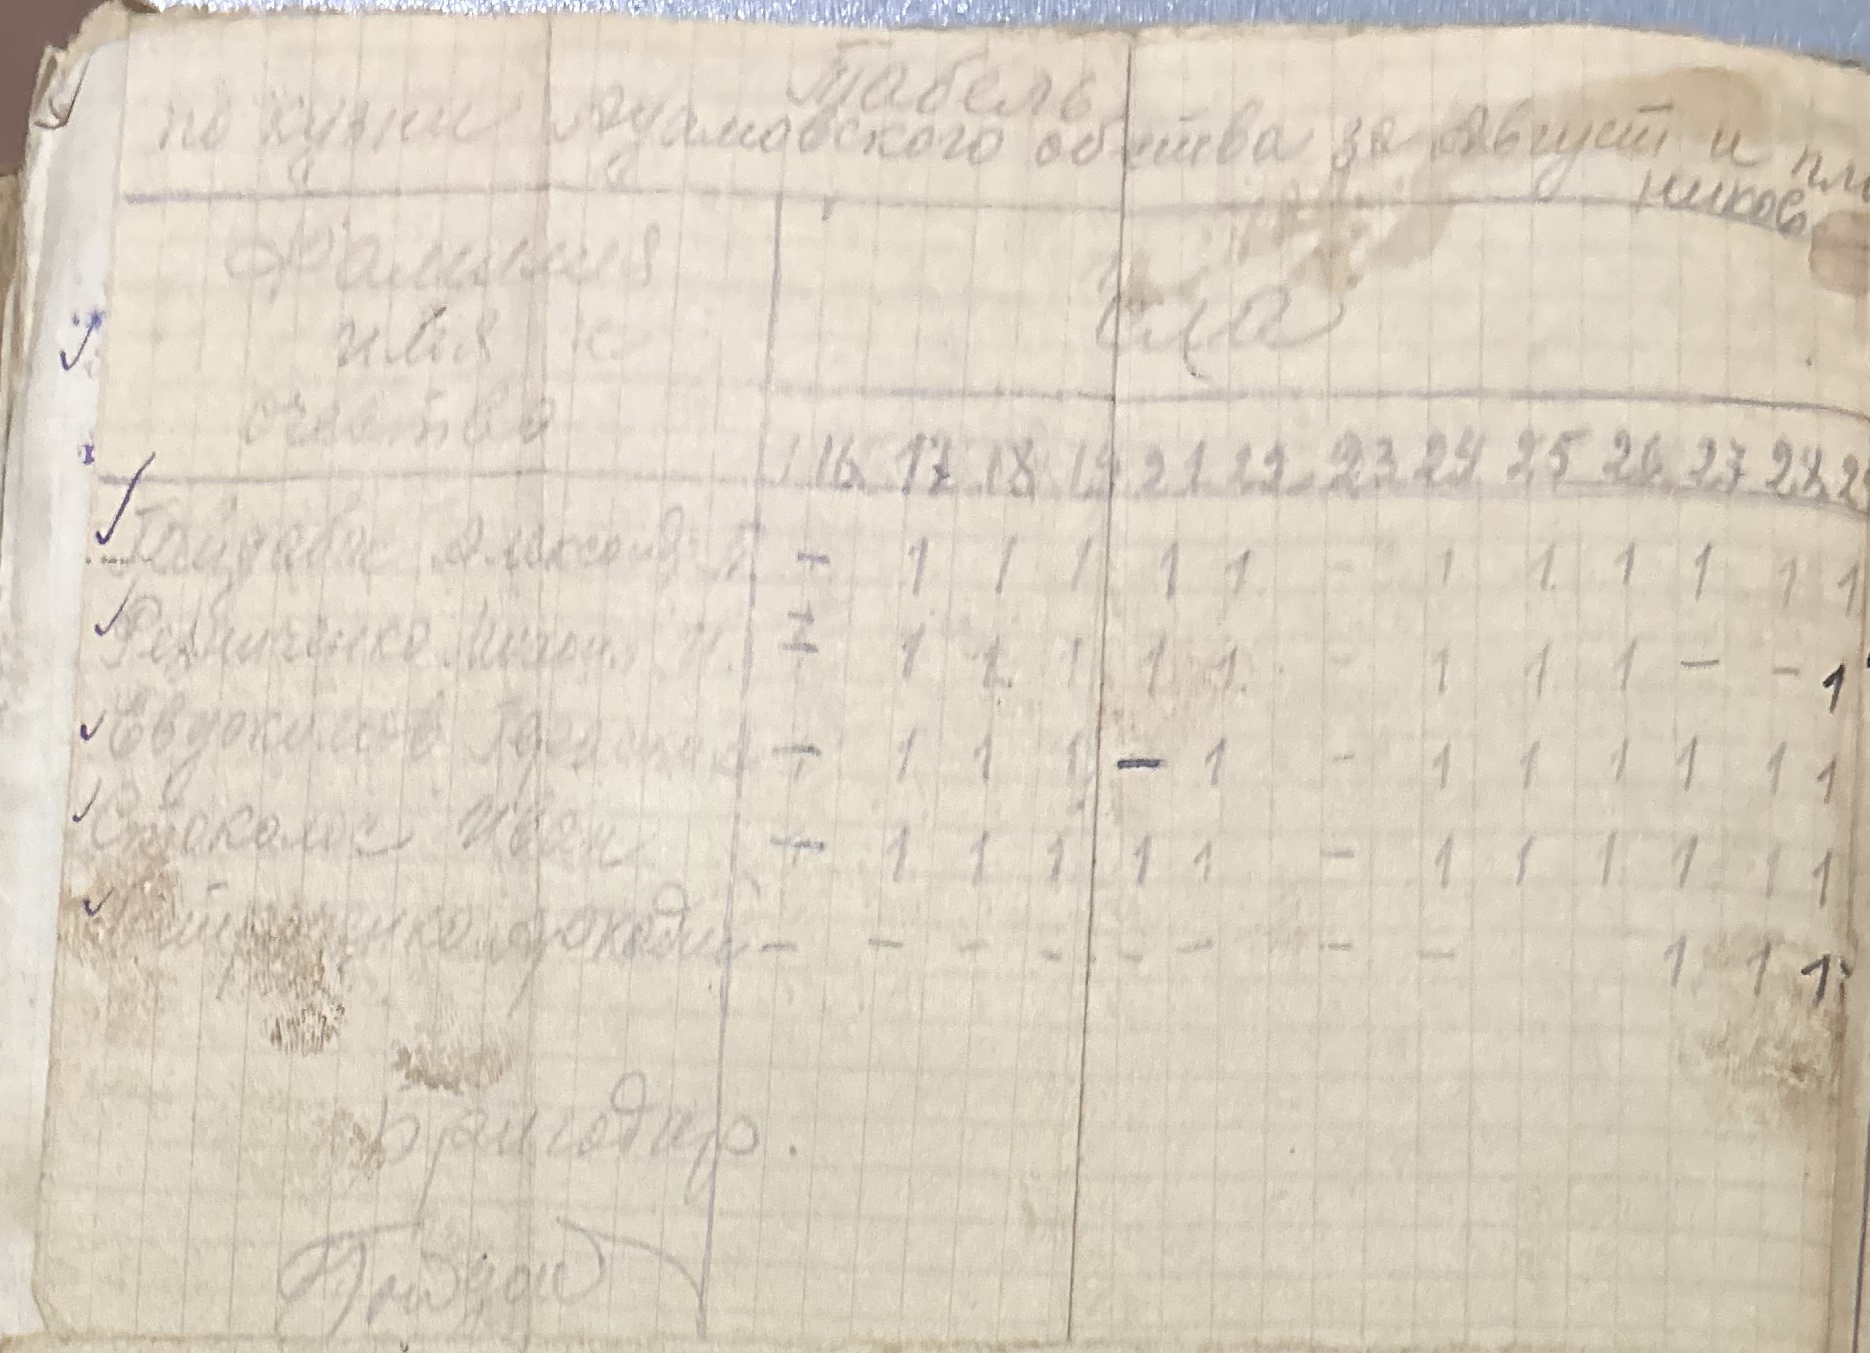 Табель
по кузни Адамовского общества за Август и
ников
Фамилия
имя и
очество
Числа
16 17 18 19 21 22 23 24 25 26 27 28
Гайдабас Александр - 1 1 1 1 1 - 1 1 1 1 1 1
Резниченко И. - 1 1 1 1 1 - 1 1 1 - - 1
Евдокимов - 1 1 1 - 1 - 1 1 1 1 1 1
Стоколос Иван + 1 1 1 1 1 - 1 1 1 1 1 1
- - - - - - - - 1 1 1
Бригадир.